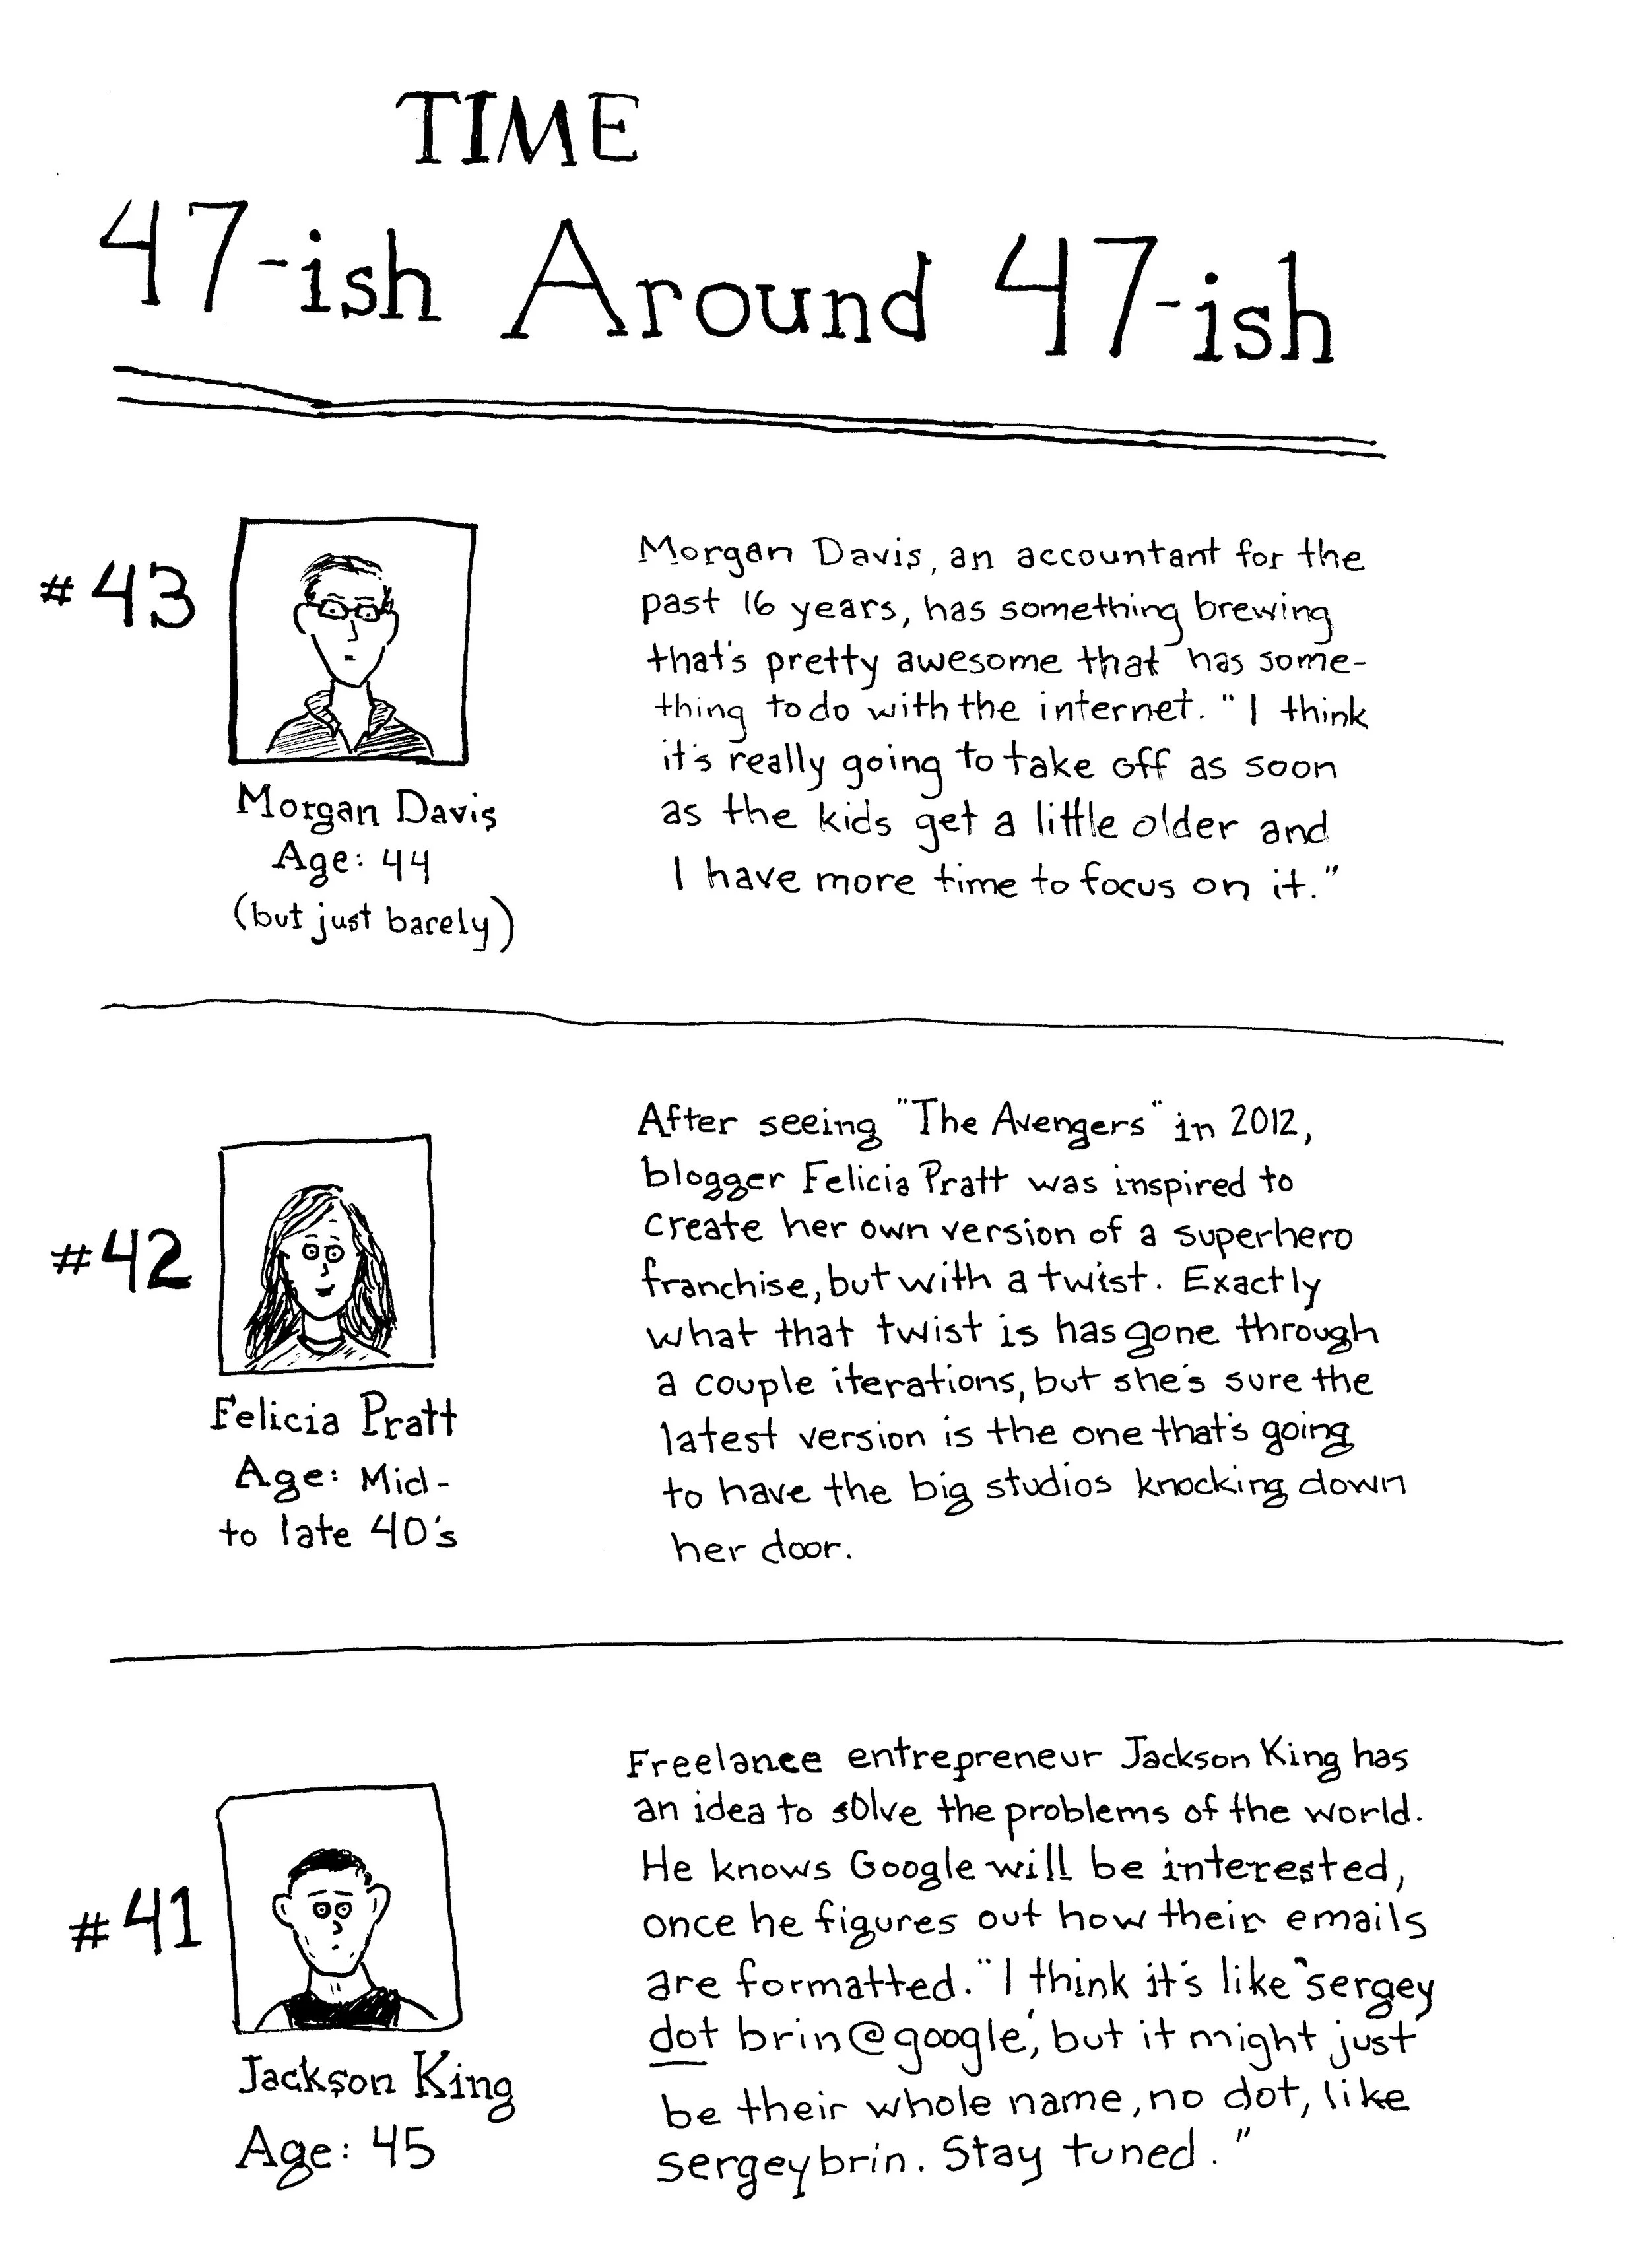 TIME
47-ish Around 47-ish
#43
Morgan Davis
Age: 44
(but just barely)
Morgan Davis, an accountant for the
past 16 years, has something brewing
that's pretty awesome that has some-
thing to do with the internet. "I think
it's really going to take off as soon
as the kids get a little older and
I have more time to focus on it."
#42
Felicia Pratt
Age: Mid-
to late 40's
After seeing "The Avengers" in 2012,
blogger Felicia Pratt was inspired to
create her own version of a superhero
franchise, but with a twist. Exactly
what that twist is has gone through
a couple iterations, but she's sure the
latest version is the one that's going
to have the big studios knocking down
her door.
#41
Jackson King
Age: 45
Freelance entrepreneur Jackson King has
an idea to solve the problems of the world.
He knows Google will be interested,
once he figures out how their emails
are formatted. "I think it's like "sergey
dot brin@google,' but it might just
be their whole name, no dot, like
sergeybrin. Stay tuned."